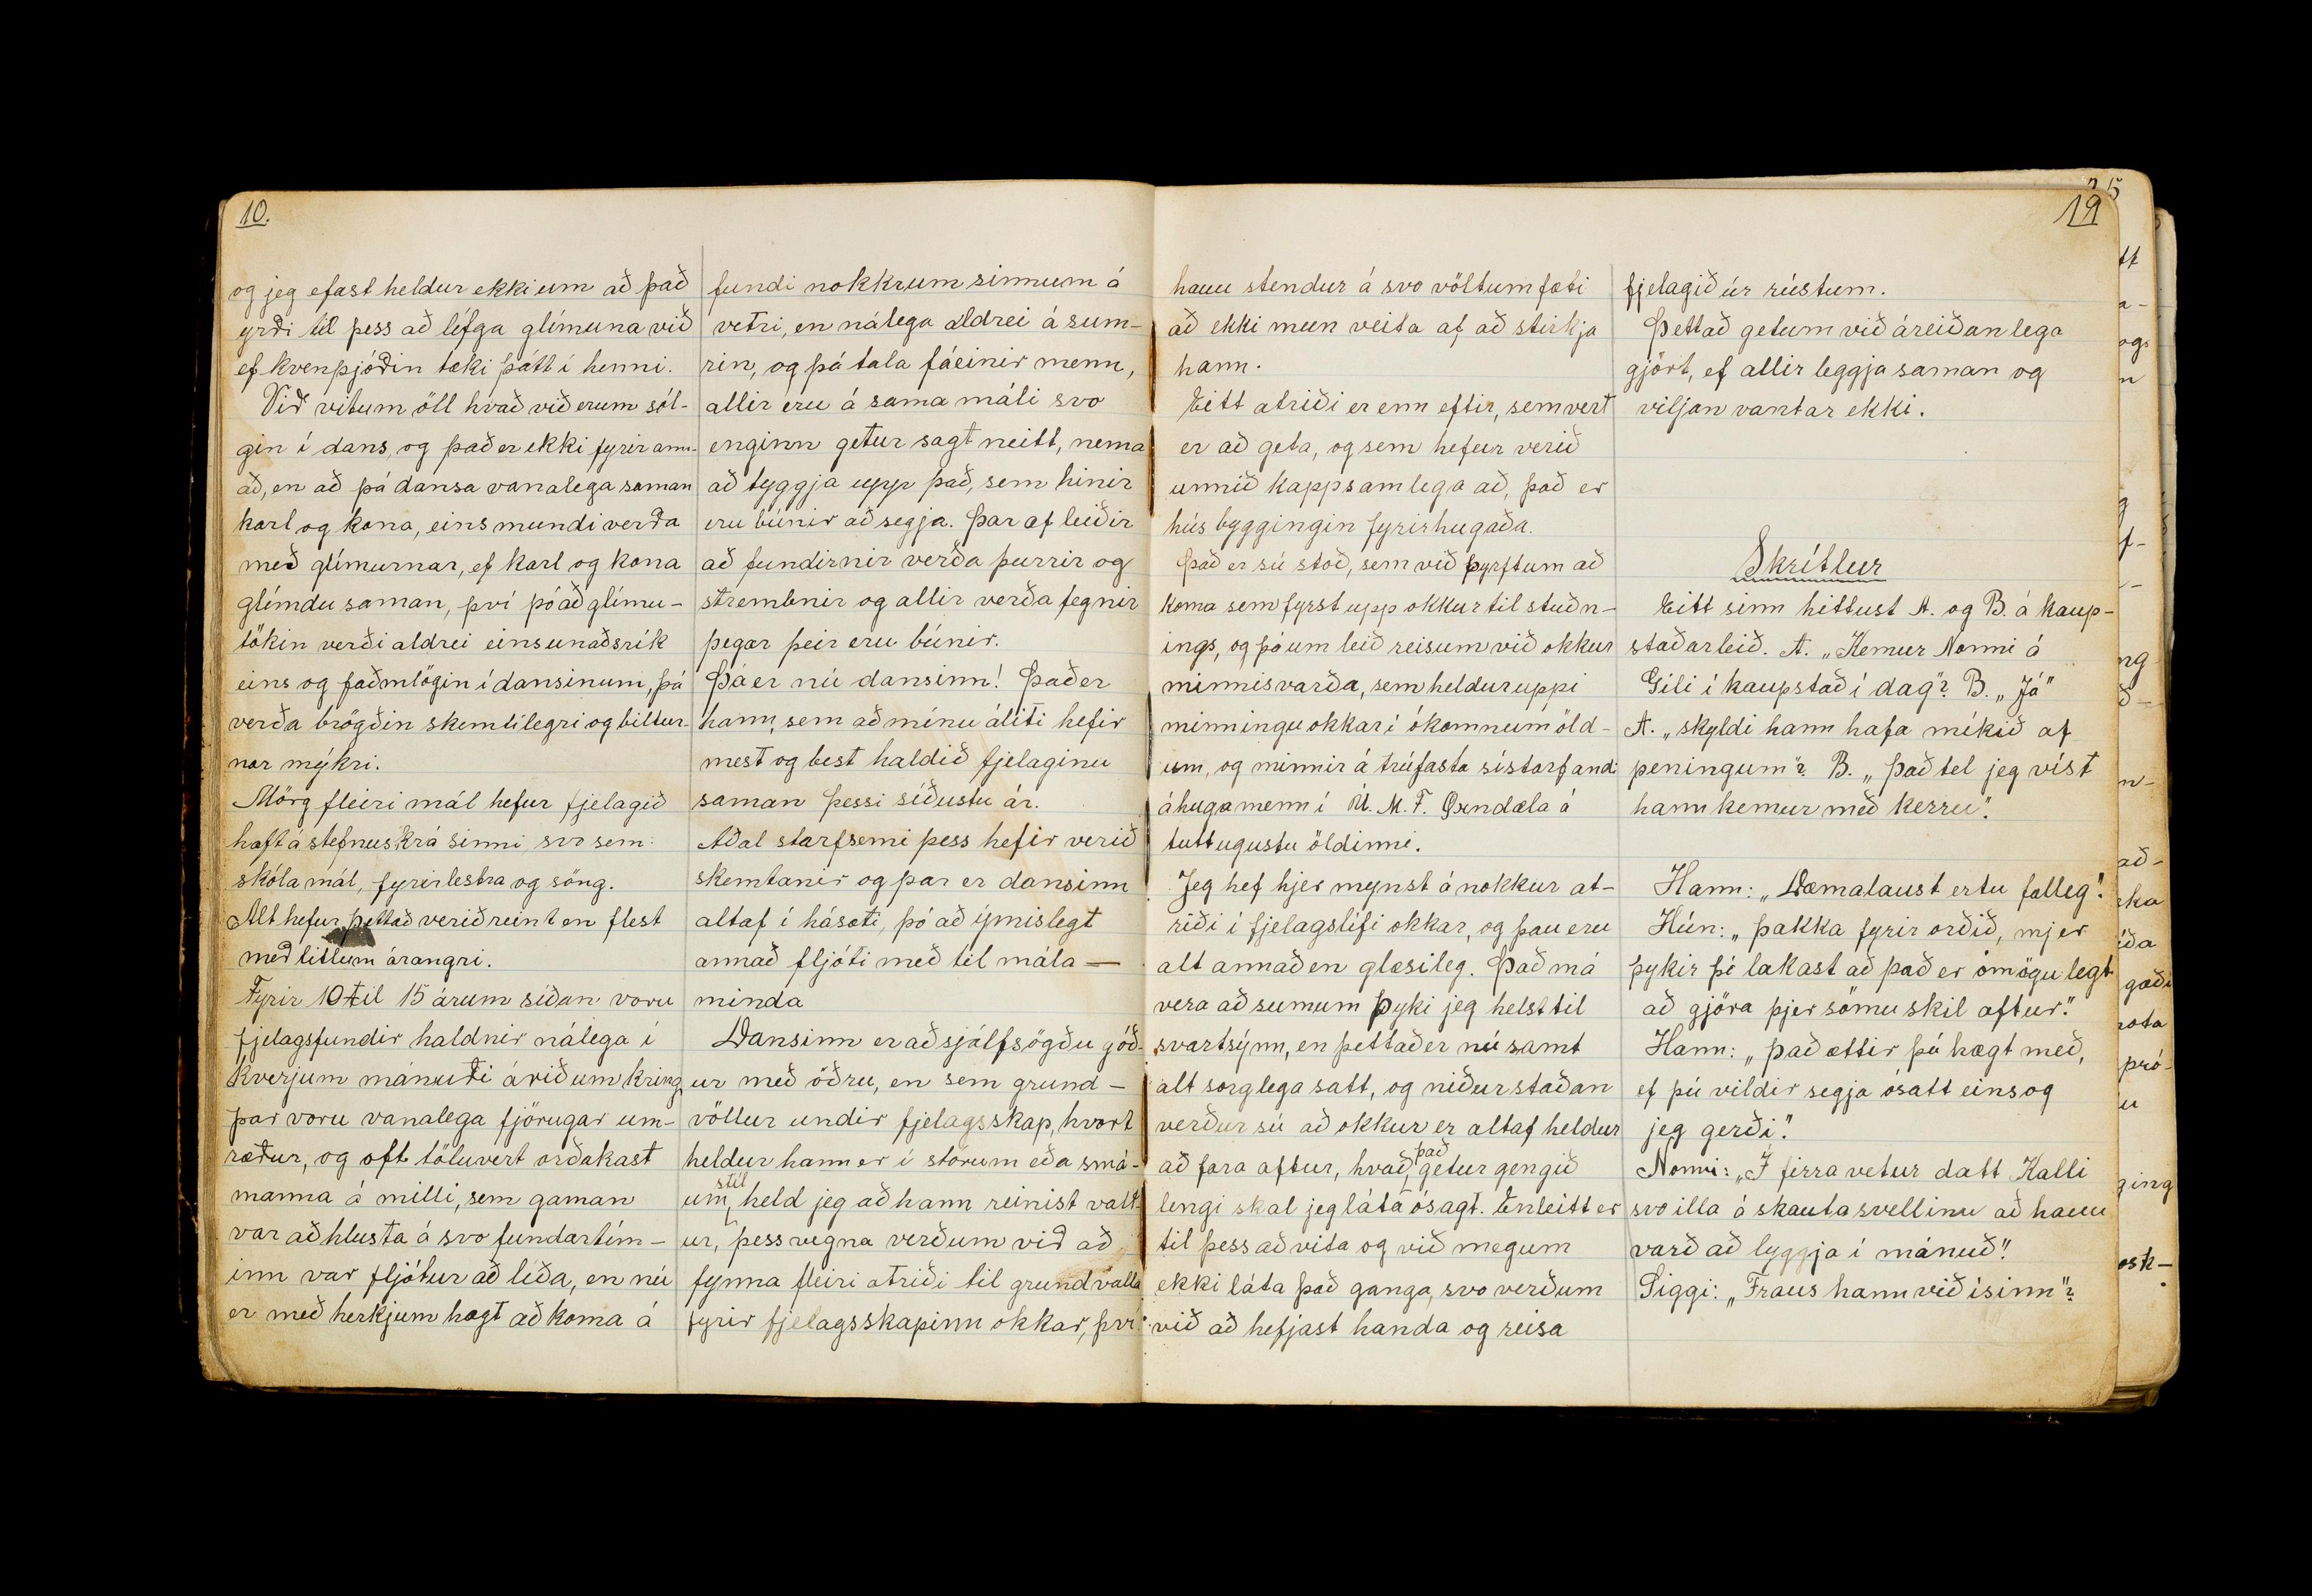 10.
og jeg efast heldur ekki um að það
yrði til þess að lífga glímuna við
ef kvenþjóðin tæki þátt í henni.
Við vitum öll hvað við erum sól-
gin í dans, og það er ekki fyrir ann-
að, en að þá dansa vanalega saman
karl og kona, eins mundi verða
með glímurnar, ef karl og kona
glímdu saman, því þó að glímu-
tökin verði aldrei eins unaðsrík
eins og faðmlögin í dansinum, þá
verða brögðin skemtilegri og biltur-
nar mýkri.
Mörg fleiri mál hefur fjelagið
haft á stefnuskrá sinni, svo sem:
skólamál, fyrirlestra og söng.
Alt hefur þettað verið reint en flest
með litlum árangri.
Fyrir 10 til 15 árum síðan voru
fjelagsfundir haldnir nálega í
hverjum mánuði árið um kring
þar voru vanalega fjörugar um-
ræður, og oft töluvert orðakast
manna á milli, sem gaman
var að hlusta á svo fundartím-
inn var fljótur að líða, en nú
er með herkjum hægt að koma á
fundi nokkrum sinnum á
vetri, en nálega aldrei á sum-
rin, og þá tala fáeinir menn,
allir eru á sama máli svo
enginn getur sagt neitt, nema
að tyggja upp það, sem hinir
eru búnir að segja. Þar af leiðir
að fundirnir verða þurrir og
strembnir og allir verða fegnir
þegar þeir eru búnir.
Þá er nú dansinn! Það er
hann, sem að mínu áliti hefir
mest og best haldið fjelaginu
saman þessi síðustu ár.
Aðal starfsemi þess hefir verið
skemtanir og þar er dansinn
altaf í hásæti, þó að ýmislegt
annað fljóti með til mála—
minda
Dansinn er að sjálfsögðu góð-
ur með öðru, en sem grund-
völlur undir fjelagsskap, hvort
heldur hann er í stórum eða smá-
um stíl, held jeg að hann reinist valt-
ur, þess vegna verðum við að
fynna fleiri atriði til grundvalla
fyrir fjelagsskapinn okkar, því
19
hann stendur á svo völtum fæti
að ekki mun veita af að stirkja
hann.
Eitt atriði er enn eftir, sem vert
er að geta, og sem hefur verið
unnið kappsamlega að, það er
hús byggingin fyrirhugaða.
Það er sú stoð, sem við þyrftum að
koma sem fyrst upp okkur til stuðn-
ings, og þá um leið reisum við okkur
minnisvarða, sem heldur uppi
minningu okkar í ókomnum öld-
um, og minnir á trúfasta sístarfandi
áhugamenn í U. M. F. Öxndæla á
tuttugustu öldinni.
Jeg hef hjer mynst á nokkur at-
riði í fjelagslífi okkar, og þau eru
alt annað en glæsileg. Það má
vera að sumum þyki jeg helst til
svartsýnn, en þettað er nú samt
alt sorglega satt, og niðurstaðan
verður sú að okkur er altaf heldur
að fara aftur, hvað það getur gengið
lengi skal jeg láta ósagt. Enleitt er
til þess að vita og við megum
ekki láta það ganga, svo verðum
við að hefjast handa og reisa
fjelagið úr rústum.
Þettað getum við áreiðanlega
gjört, ef allir leggja saman og
viljan vantar ekki.
Skrítlur
Eitt sinn hittust A. og B. á kaup-
staðarleið. A. „Kemur Nonni á
Gili í kaupstað í dag"? B. „Já"
A. „skyldi hann hafa mikið af
peningum"? B. „Það tel jeg víst
hann kemur með kerru".
Hann: „Dæmalaust ertu falleg".
Hún: „Þakka fyrir orðið, mjer
þykir þó lakast að það er ómögulegt
að gjöra þjer sömu skil aftur".
Hann: „Það ættir þú hægt með,
ef þú vildir segja ósatt eins og
jeg gerði".
Nonni: „Í firra vetur datt Kalli
svo illa á skautasvellinu að hann
varð að lyggja í mánuð".
Siggi: „Fraus hann við ísinn"?